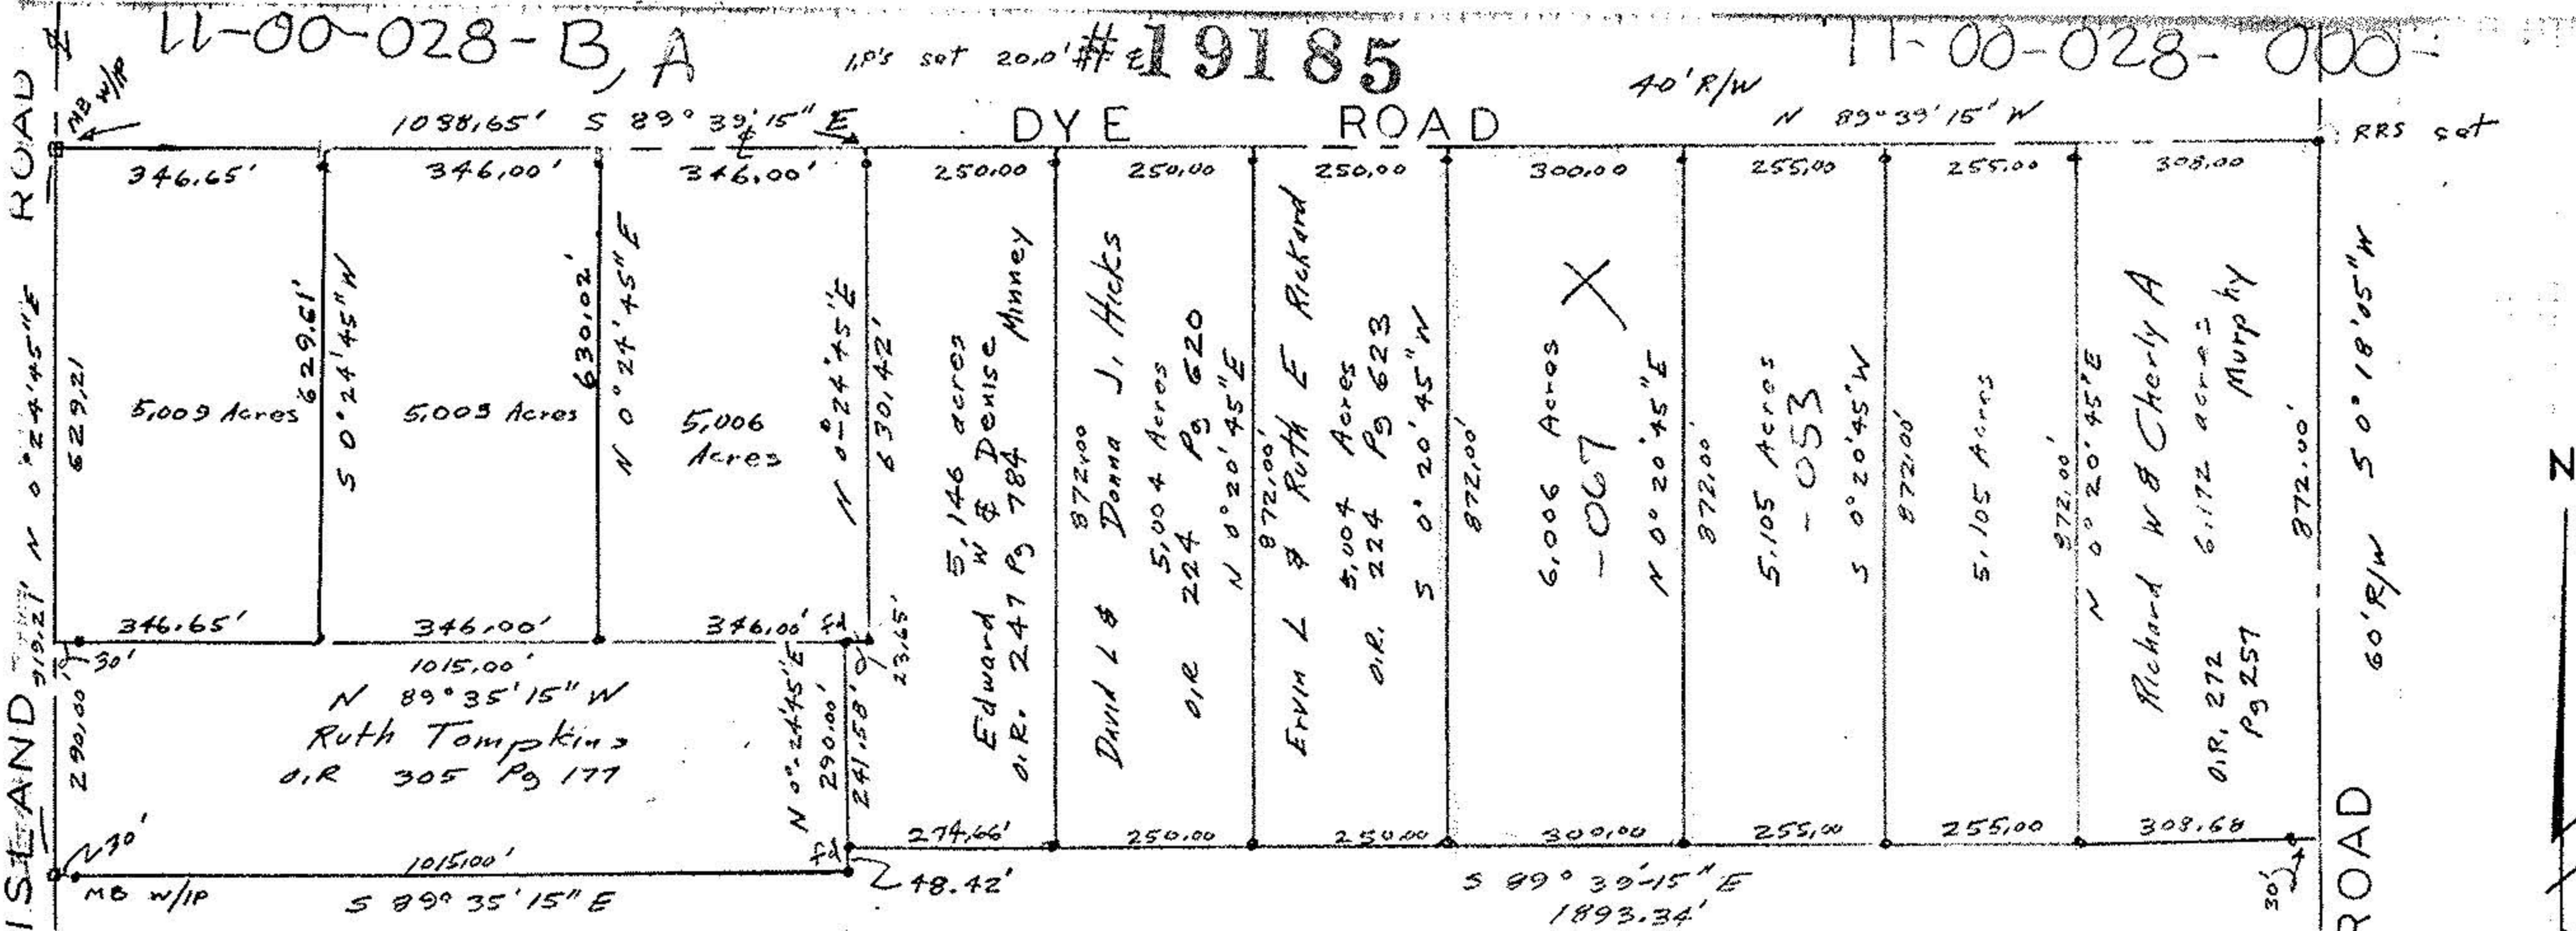 11-00-028-B, A
I.P's set 20.0' # 19185
11-00-028-000-
40' R/W
ROAD
MB W/IP
1038.65' S 89° 39' 15" E
DYE ROAD
N 89° 39' 15" W
RRS set
346.65' 346.00' 346.00' 250.00 250.00 250.00 300.00 255.00 255.00 308.00
N 0° 24' 45" E
629.21
5.009 Acres
629.61'
S 0° 24' 45" W
5.003 Acres
630.02'
N 0° 24' 45" E
5.006
Acres
N 0° 24' 45" E
630.42'
5.146 acres
Edward W & Denise Minney
O.R. 247 Pg 784
872.00
David L & Donna J. Hicks
5.004 Acres
O.R 224 Pg 620
N 0° 20' 45" E
872.00'
Ervin L & Ruth E Rickard
5.004 Acres
O.R. 224 Pg 623
S 0° 20' 45" W
872.00'
6.006 Acres X
-067
N 0° 20' 45" E
872.00'
5.105 Acres
-053
S 0° 20' 45" W
872.00'
5.105 Acres
872.00'
N 0° 20' 45" E
Richard W & Cherly A Murphy
6.172 acres
O.R. 272
Pg 257
872.00'
60' R/W S 0° 18' 05" W
N
346.65' 346.00' 346.00' fd
30'
23.65'
919.21'
1015.00'
N 89° 35' 15" W
Ruth Tompkins
O.R 305 Pg 177
290.00'
N 0° 24' 45" E
290.00'
241.58'
274.66' 250.00 250.00 300.00 255.00 255.00 308.68
30'
fd
1015.00'
48.42'
MB W/IP
S 89° 35' 15" E
S 89° 39' 15" E
1893.34'
30'
ISLAND
ROAD